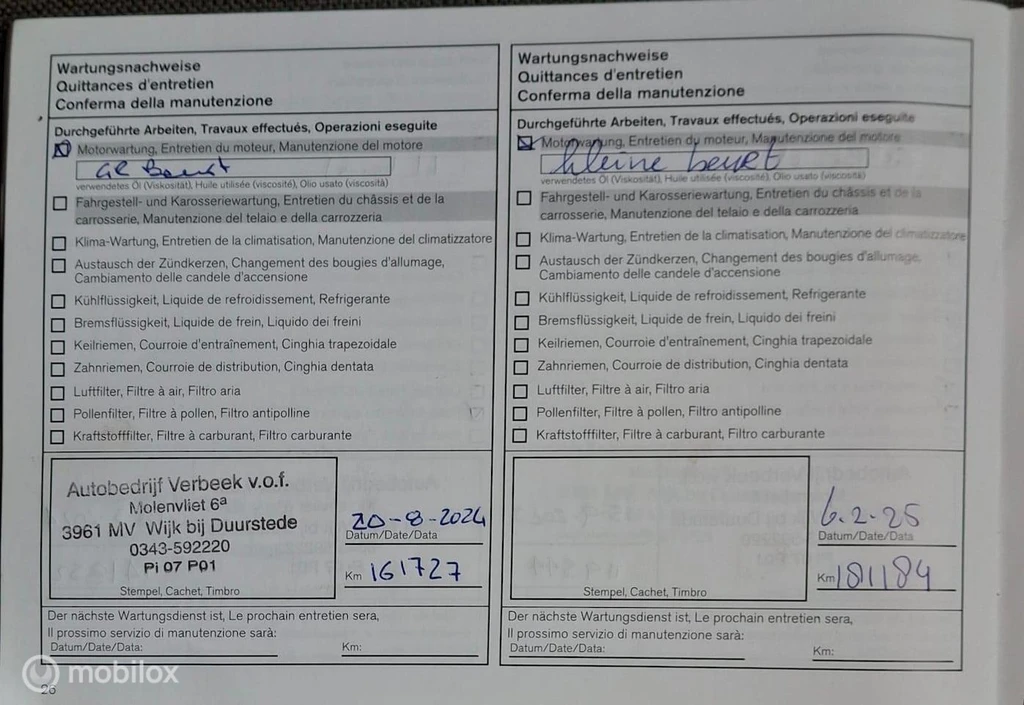 Wartungsnachweise
Quittances d'entretien
Conferma della manutenzione
Durchgeführte Arbeiten, Travaux effectués, Operazioni eseguite
Motorwartung, Entretien du moteur, Manutenzione del motore
GR Beurt
verwendetes Öl (Viskosität), Huile utilisée (viscosité), Olio usato (viscosità)
Fahrgestell- und Karosseriewartung, Entretien du châssis et de la
carrosserie, Manutenzione del telaio e della carrozzeria
Klima-Wartung, Entretien de la climatisation, Manutenzione del climatizzatore
Austausch der Zündkerzen, Changement des bougies d'allumage,
Cambiamento delle candele d'accensione
Kühlflüssigkeit, Liquide de refroidissement, Refrigerante
Bremsflüssigkeit, Liquide de frein, Liquido dei freini
Keilriemen, Courroie d'entraînement, Cinghia trapezoidale
Zahnriemen, Courroie de distribution, Cinghia dentata
Luftfilter, Filtre à air, Filtro aria
Pollenfilter, Filtre à pollen, Filtro antipolline
Kraftstofffilter, Filtre à carburant, Filtro carburante
Autobedrijf Verbeek v.o.f.
Molenvliet 6a
3961 MV Wijk bij Duurstede
0343-592220
Pi 07 P01
Stempel, Cachet, Timbro
20-8-2024
Datum/Date/Data
Km 161727
Der nächste Wartungsdienst ist, Le prochain entretien sera,
Il prossimo servizio di manutenzione sarà:
Datum/Date/Data:
Km:
26
Wartungsnachweise
Quittances d'entretien
Conferma della manutenzione
Durchgeführte Arbeiten, Travaux effectués, Operazioni eseguite
Motorwartung, Entretien du moteur, Manutenzione del motore
kleine beurt
verwendetes Öl (Viskosität), Huile utilisée (viscosité), Olio usato (viscosità)
Fahrgestell- und Karosseriewartung, Entretien du châssis et de la
carrosserie, Manutenzione del telaio e della carrozzeria
Klima-Wartung, Entretien de la climatisation, Manutenzione del climatizzatore
Austausch der Zündkerzen, Changement des bougies d'allumage,
Cambiamento delle candele d'accensione
Kühlflüssigkeit, Liquide de refroidissement, Refrigerante
Bremsflüssigkeit, Liquide de frein, Liquido dei freini
Keilriemen, Courroie d'entraînement, Cinghia trapezoidale
Zahnriemen, Courroie de distribution, Cinghia dentata
Luftfilter, Filtre à air, Filtro aria
Pollenfilter, Filtre à pollen, Filtro antipolline
Kraftstofffilter, Filtre à carburant, Filtro carburante
Stempel, Cachet, Timbro
6.2-25
Datum/Date/Data
Km 181184
Der nächste Wartungsdienst ist, Le prochain entretien sera,
Il prossimo servizio di manutenzione sarà:
Datum/Date/Data:
Km:
mobilox